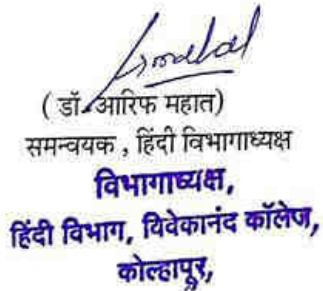 ( डॉ. आरिफ महात)
समन्वयक , हिंदी विभागाध्यक्ष
विभागाध्यक्ष,
हिंदी विभाग, विवेकानंद कॉलेज,
कोल्हापूर,